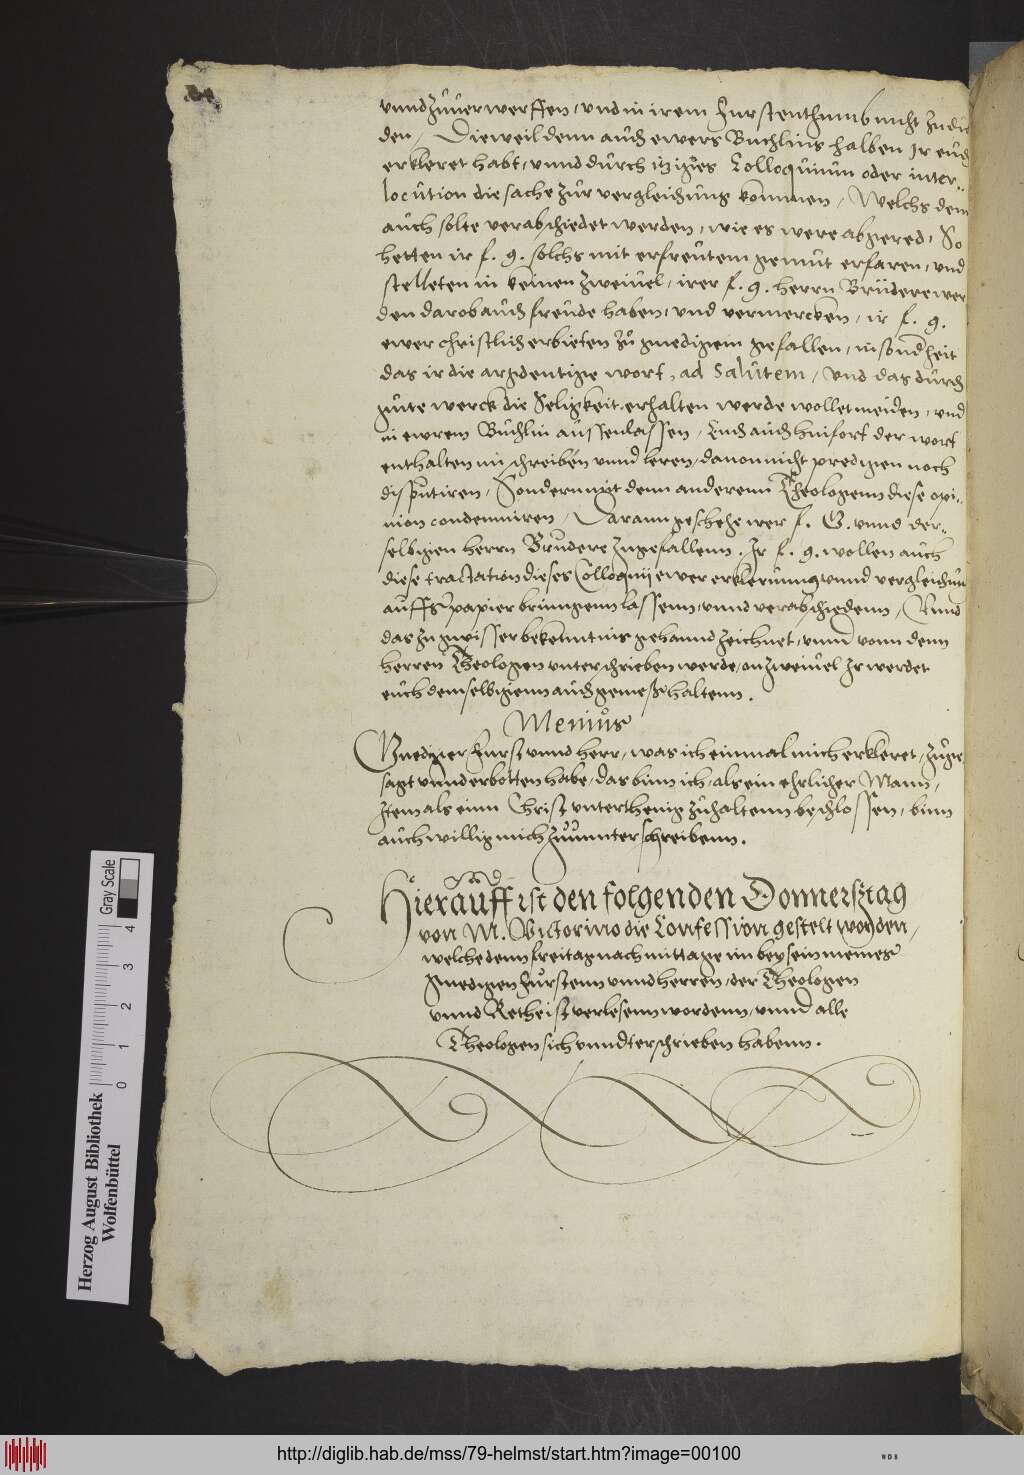 vnnd zuuerwerffen, vnd in irem Furstenthumb nicht zudul
den, Dieweil denn auch ewers Buchlins halben Ir euch
erkleret habt, vnnd durch itziges Colloquium oder inter-
locution die sache zur vergleichung kommen, Welchs dem
auch solte verabschiedet werden, wie es were abgered, So
hetten ir f. g. solchs mit erfreutem gemut erfaren, vnd
stelleten in keinen zweiuel, irer f. g. herrn Brüdere wer
den darob auch freude haben, vnd vermercken, ir f. g.
ewer christlich erbieten zu gnedigem gefallen, in sondheit
das ir die wort, ad Salutem, Vnd das durch
gute werck die Seligkeit erhalten werde wollet meiden, vnd
in ewrem Buchlin aussenlassen, Euch auch hinfort der wort
enthalten im schreiben vnnd leren, dauon nicht predigen noch
disputiren, Sondern mit denn anderenn Theologenn diese opi-
nion condemniren, Darann geschehe irer f. G. vnnd der-
selbigen herrn Brudere zugefallenn. Ir f. g. wollen auch
diese tractation dieses Colloquij ewer erklerunng vnnd vergleichun
auffs papier brinngenn lassenn, vnnd verabschiedenn, Vnnd
das zu gwisser bekenntnis gehannd zeichnet, vnnd vonn denn
herren Theologen unterschrieben werde, on zweiuel Ir werdet
euch demselbigenn auch gemeß haltenn.
Menius
Gnediger Furst vnnd herr, was ich einmal mich erkleret, zuge
sagt vnnd erbotten habe, das binn ich, als ein ehrlicher Mann,
Item als einn Christ unterthenig zuhaltenn beschlossen, binn
auch willig mich zuunnterschreibenn.
Hierauff ist den folgenden Donnerstag
von M. Victorino die Confession gestelt worden,
welche denn freitag nach mittage im beysein meines
gnedigen Furstenn vnnd herren, der Theologen
vnnd Rethe ist verlesenn wordenn, vnnd alle
Theologen sich vnndterschrieben habenn.
Herzog August Bibliothek
Wolfenbüttel
0 1 2 3 4
Gray Scale
http://diglib.hab.de/mss/79-helmst/start.htm?image=00100
WDB